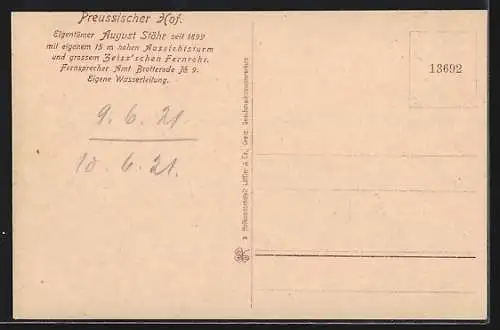 Preussischer Hof.
Eigentümer August Stöhr seit 1892
mit eigenem 15 m hohen Aussichtsturm
und grossem Zeiss'schen Fernrohr.
Fernsprecher Amt Brotterode № 9.
Eigene Wasserleitung.
9. 6. 21
10. 6. 21.
Löffler & Co., Greiz.
13692